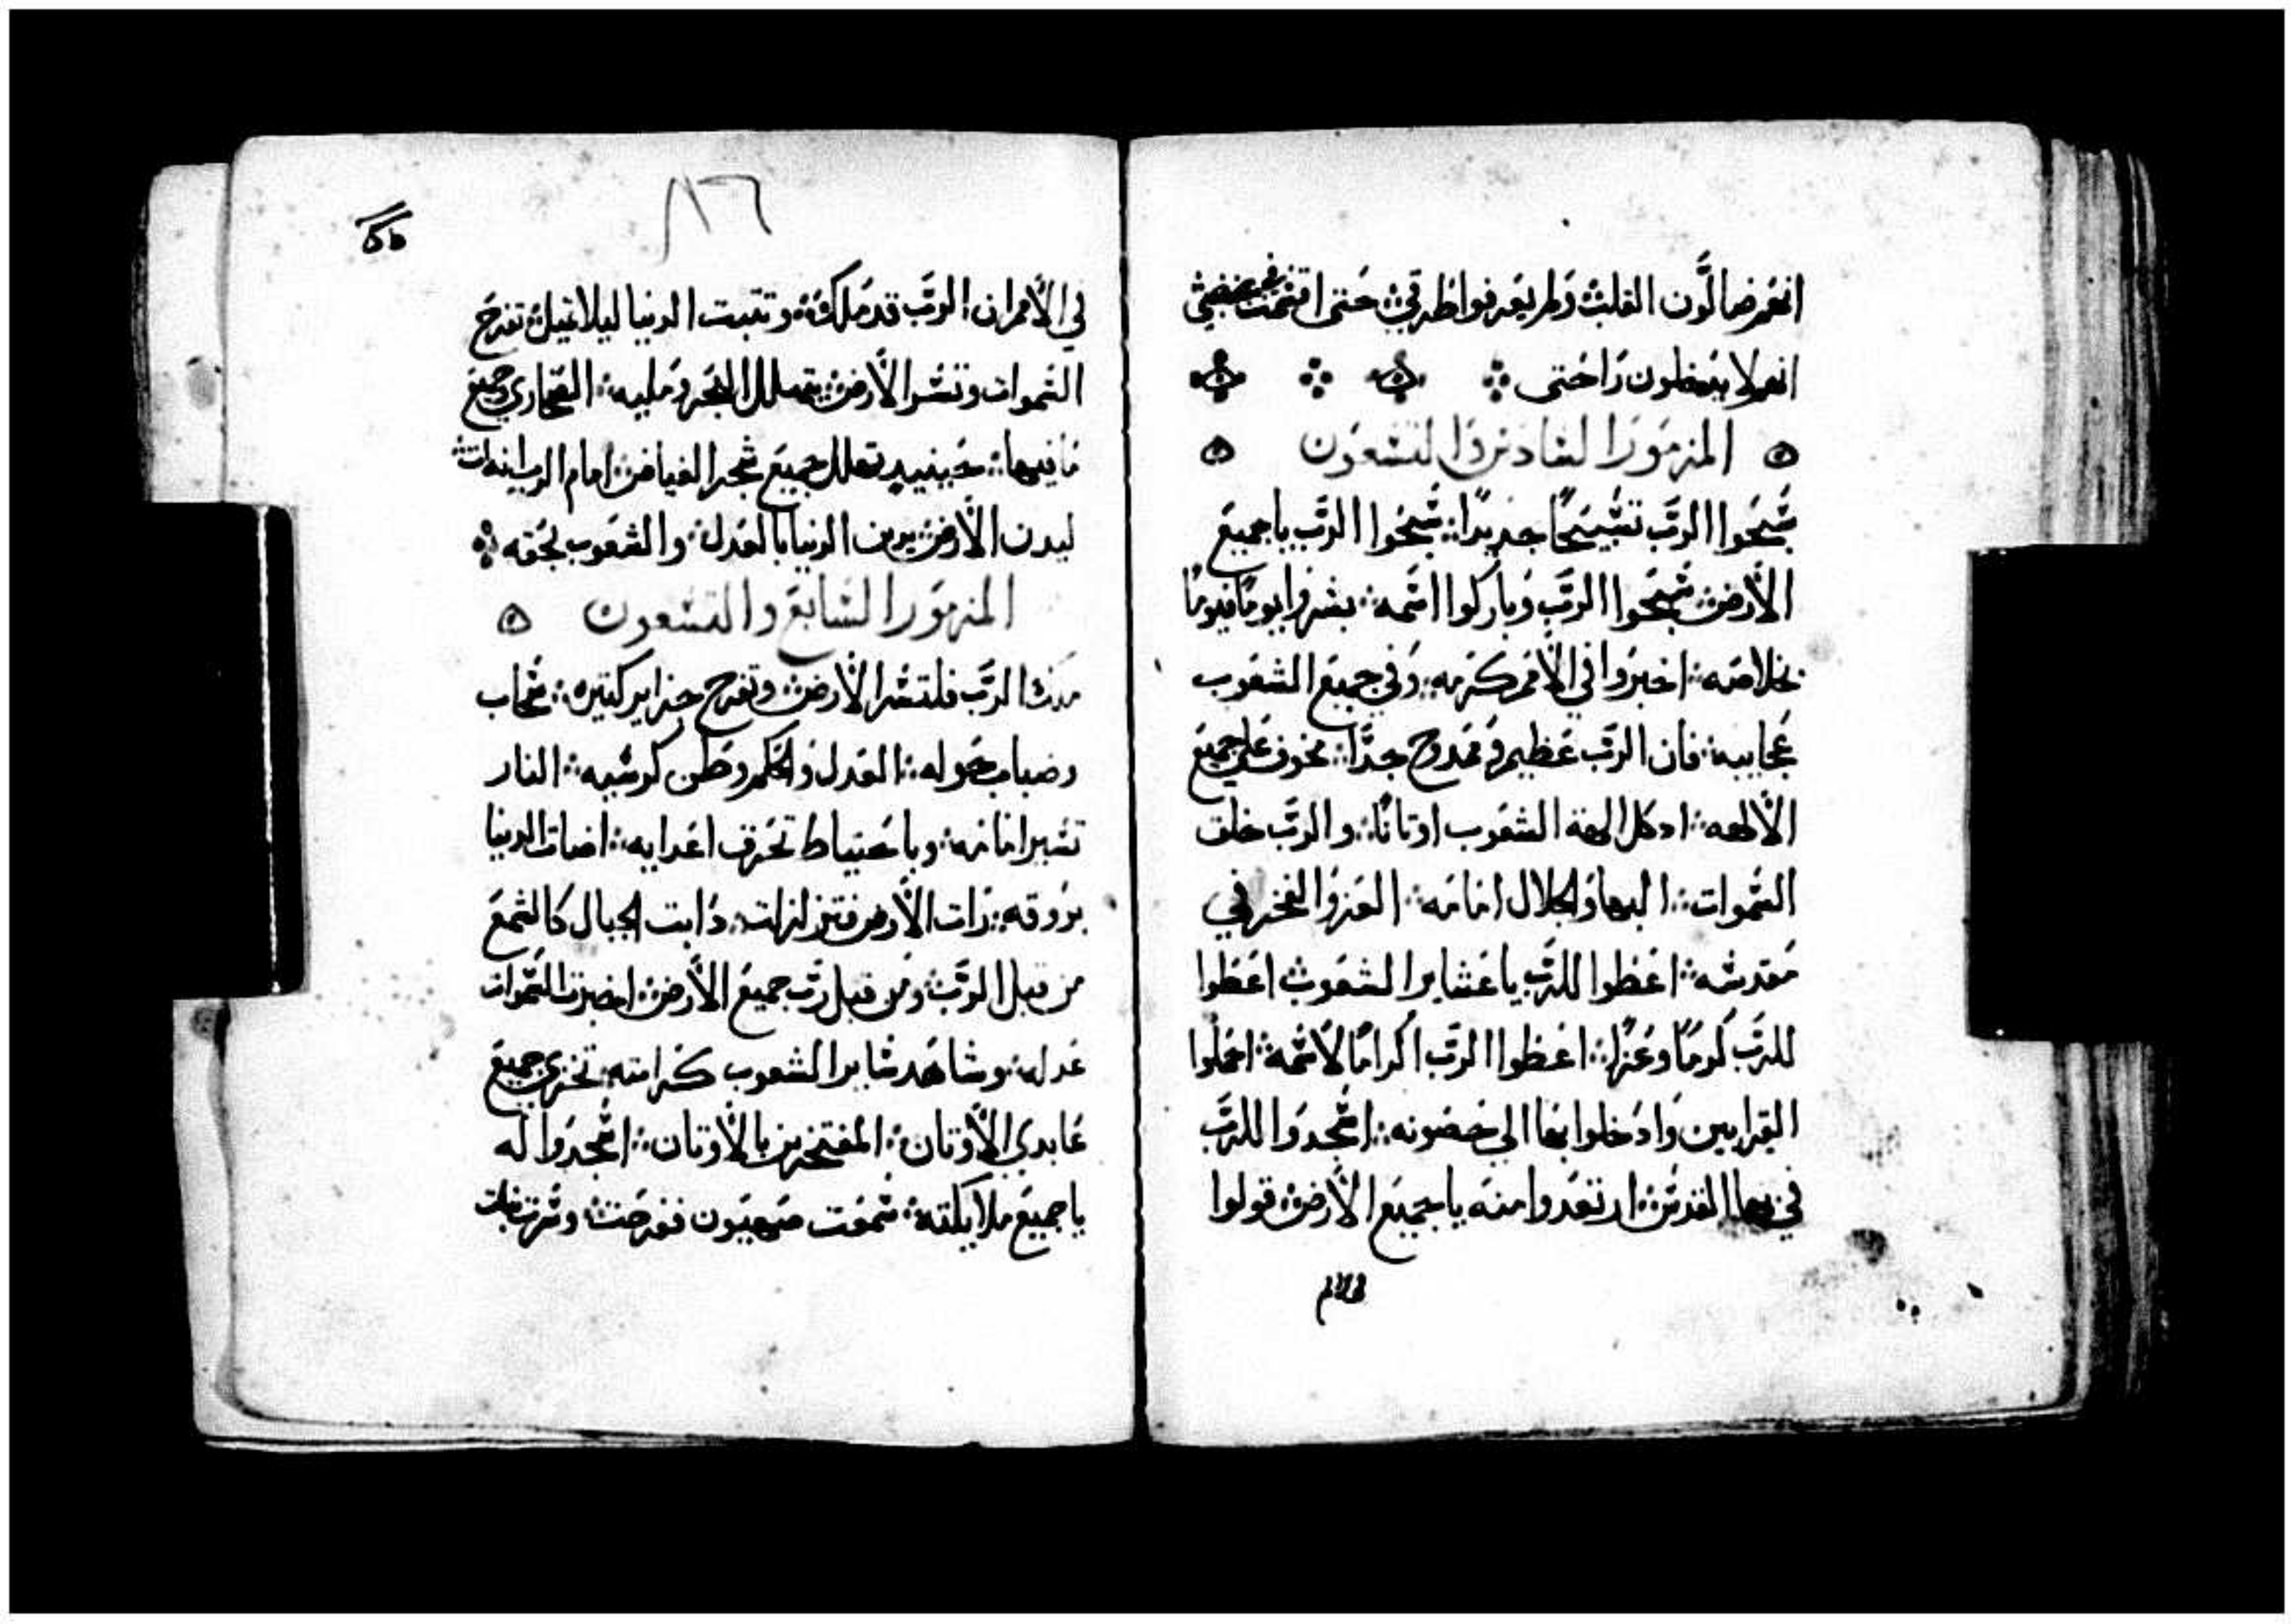 انهم ضالون القلب ولم يعرفوا طرقي حتى اقسمت بغضبي
انهم لا يدخلون راحتي
المزمور السادس والتسعون
سبحوا الرب تسبيحًا جديدًا سبحوا الرب يا جميع
الأرض سبحوا الرب وباركوا اسمه بشروا يومًا فيومًا
بخلاصه اخبروا في الأمم كرمه وفي جميع الشعوب
عجايبه فان الرب عظيم وممدوح جدًا مخوف على جميع
الألهه اد كل الهة الشعوب اوتانًا والرب خلق
السموات البها والجلال امامه العز والفخر في
مقدسه اعطوا للرب يا عشاير الشعوب اعطوا
للرب كرمًا وعزًا اعطوا الرب اكرامًا لأسمه احملوا
القرابين وادخلوا بها الي حصونه اسجدوا للرب
في بها القدس ارتعدوا منه يا جميع الأرض قولوا
في الأمم
في الأمم ان الرب قد ملك وتتبت الدنيا ليلا تميل تفرح
السموات وتسر الأرض يتهلل البحر ومليه الصحاري وجميع
ما فيها حينييد تهلل جميع شجر الغياض امام الرب لانه ات
ليدن الأرض يدين الدنيا بالعدل والشعوب بحقه
المزمور السابع والتسعون
ملك الرب فلتسر الأرض وتفرح جزاير كتيره سحاب
وضباب حوله العدل والحكم وطن كرسيه النار
تسير امامه وباحتياط تحرق اعدايه اضات الدنيا
بروقه رات الأرض فتزلزلت دابت الجبال كالشمع
من قبل الرب ومن قبل رب جميع الأرض اخبرت السموات
عدله وشاهد ساير الشعوب كرامته تخزى جميع
عابدي الأوتان المفتخرين بالأوتان اسجدوا له
يا جميع ملايكته سمعت صهيون ففرحت وسرت بنات